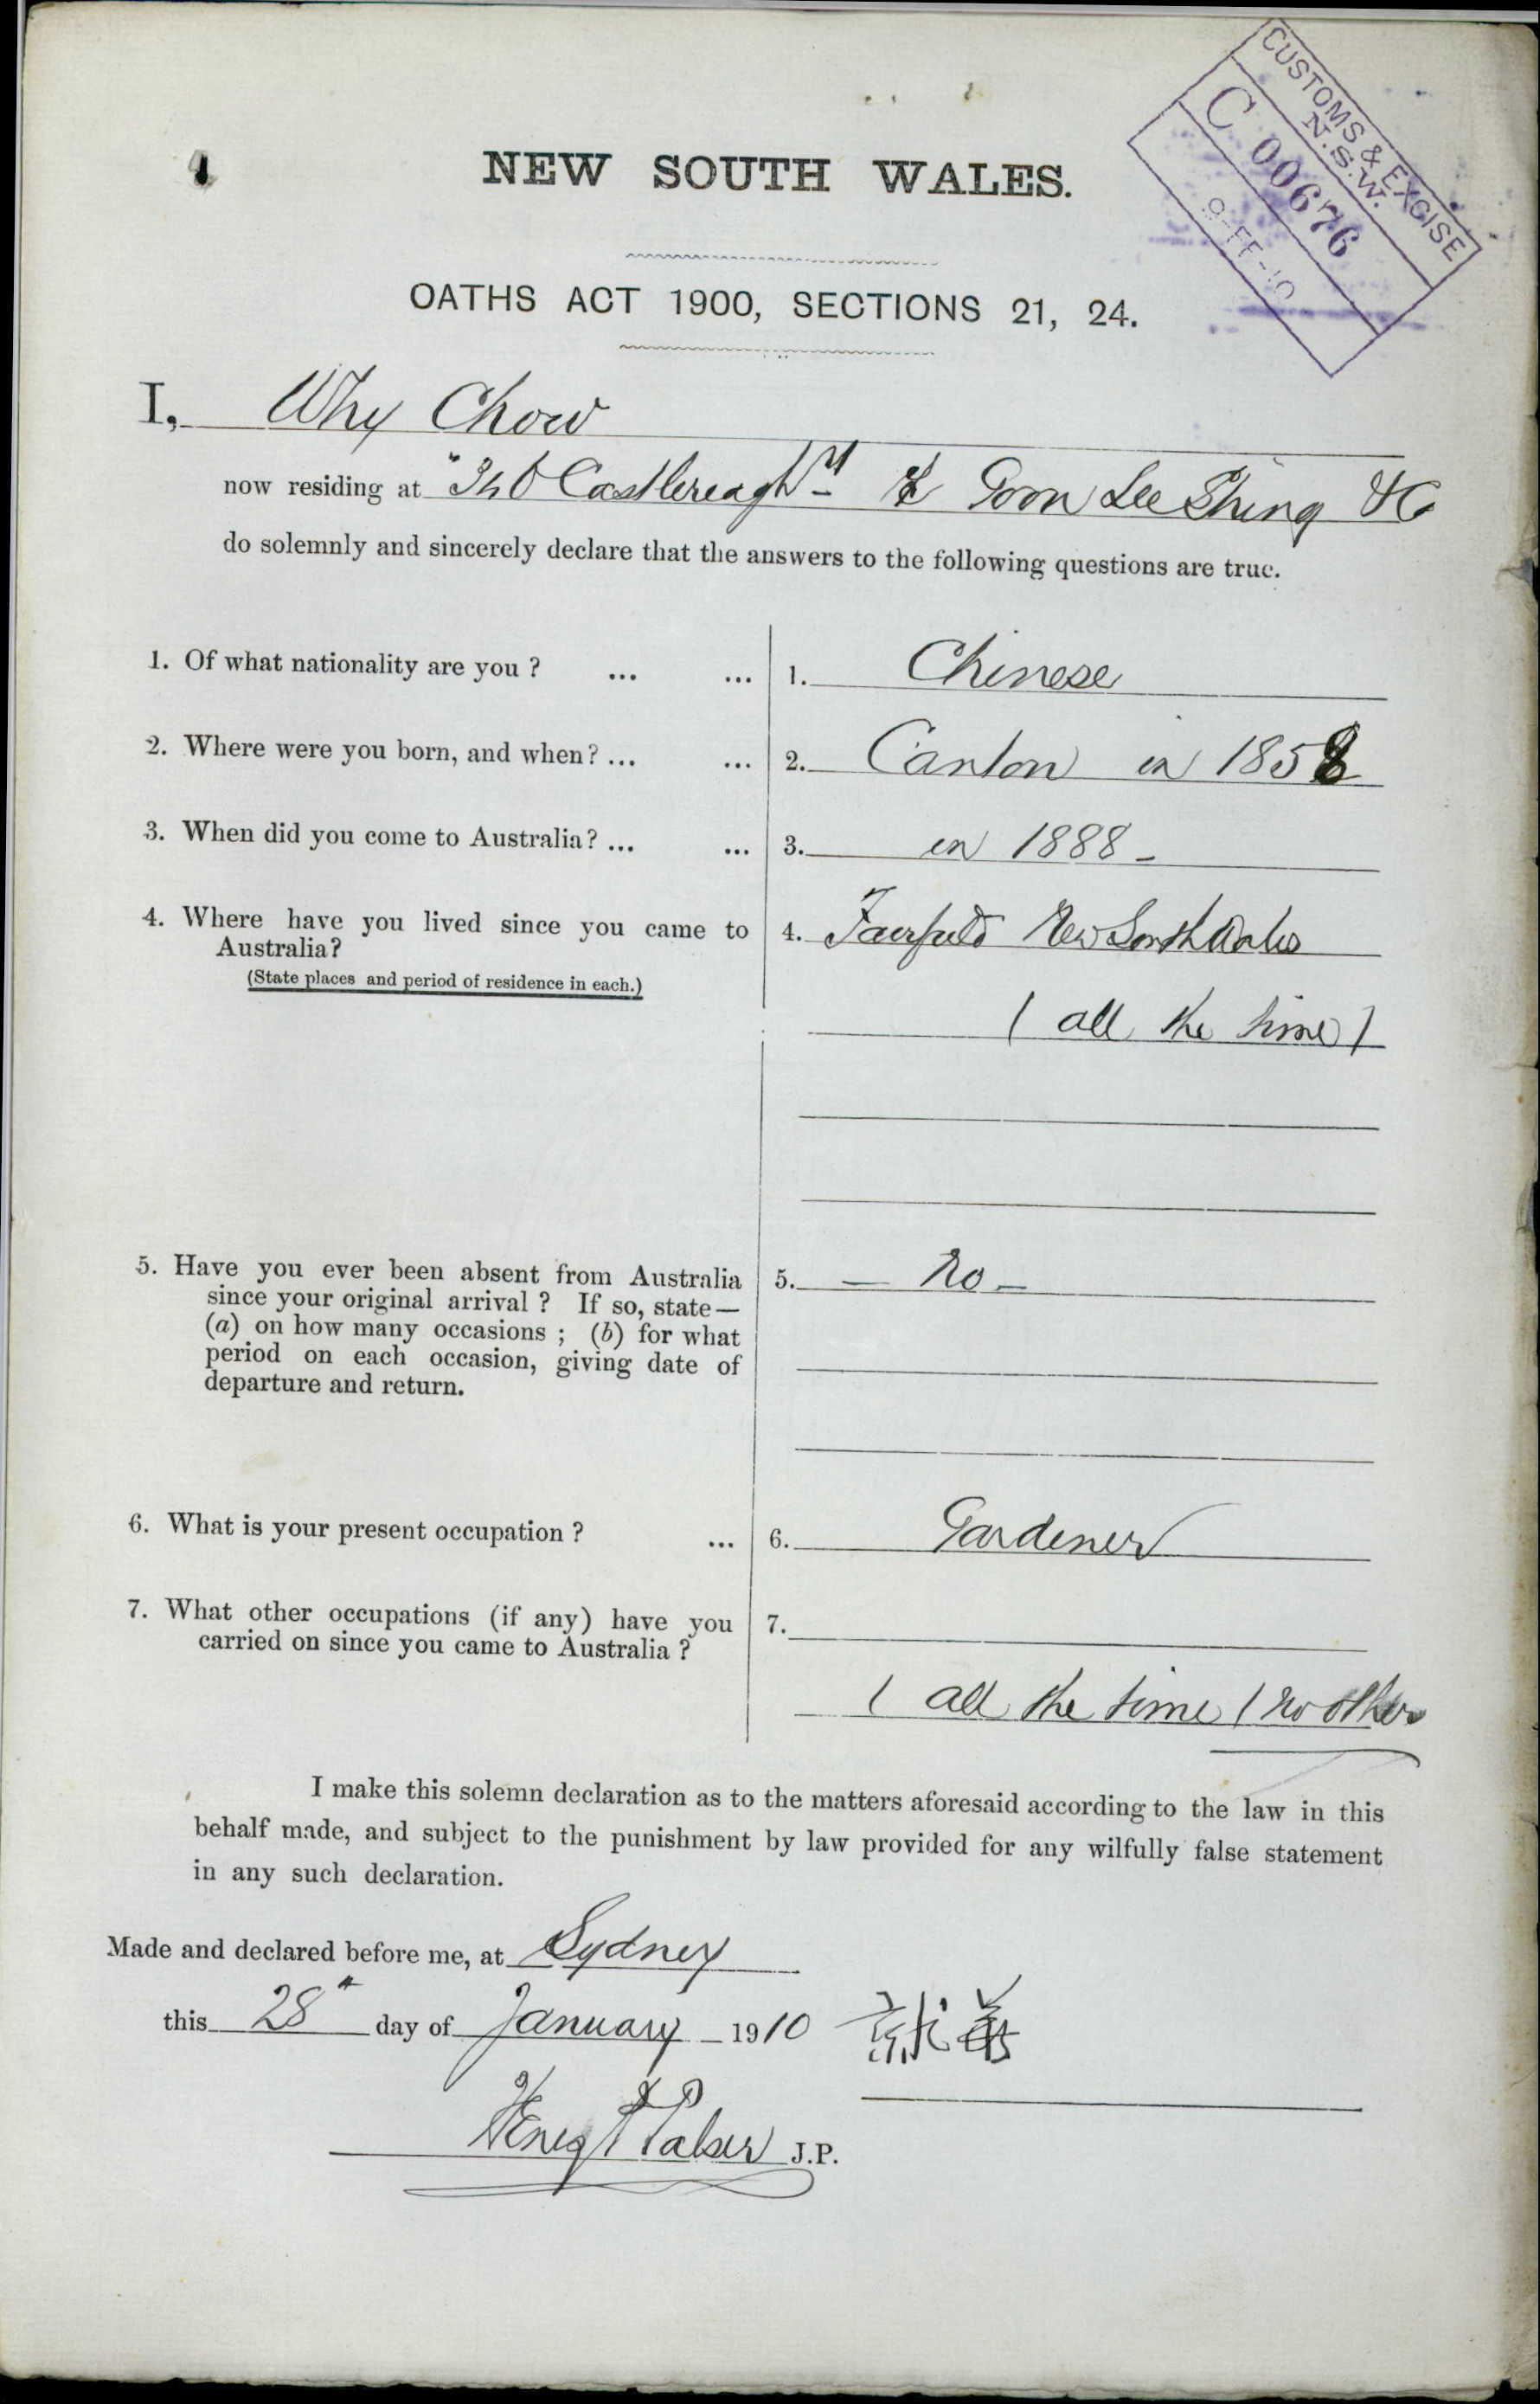 CUSTOMS & EXCISE
N.S.W.
C 00676
9-FE-10
NEW SOUTH WALES.
OATHS ACT 1900, SECTIONS 21, 24.
I, Why Chow
now residing at Castlereagh St Goon Lee Shing & Co
do solemnly and sincerely declare that the answers to the following questions are true.
1. Of what nationality are you ? ... ... 1. Chinese
2. Where were you born, and when ? ... ... 2. Canton in 1858
3. When did you come to Australia ? ... ... 3. in 1888 -
4. Where have you lived since you came to 4. Fairfield New South Wales
Australia ?
(State places and period of residence in each.)
( all the time )
5. Have you ever been absent from Australia 5. — No —
since your original arrival ? If so, state—
(a) on how many occasions ; (b) for what
period on each occasion, giving date of
departure and return.
6. What is your present occupation ? ... 6. Gardener
7. What other occupations (if any) have you 7.
carried on since you came to Australia ?
( all the time / no other
I make this solemn declaration as to the matters aforesaid according to the law in this
behalf made, and subject to the punishment by law provided for any wilfully false statement
in any such declaration.
Made and declared before me, at Sydney
this 28th day of January 1910 就
J P
J.P.